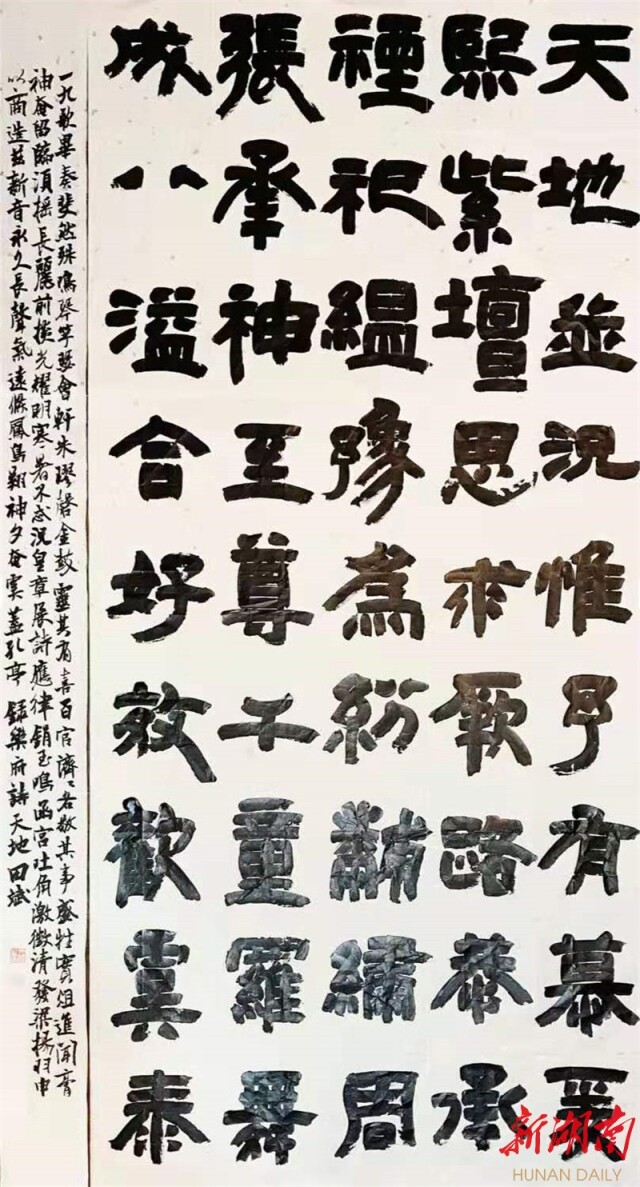 天地並況惟予有慕爰
熙紫壇思求厥路恭承
禋祀縕豫為紛黼繡周
張承神至尊千童羅舞
成八溢合好效歡虞泰
一九歌畢奏斐然殊鳴琴竽瑟會軒朱璆磬金鼓靈其有喜百官濟〻各敬其事盛牲實俎進聞膏
神奄留臨須摇長麗前掞光耀明寒暑不忒況皇章展詩應律鋗玉鳴函宮吐角激徵清發梁揚羽申
以商造茲新音永久長聲氣遠條鳳鳥翔神夕奄虞蓋孔享 録樂府詩天地 田斌
新湖南
HUNAN DAILY